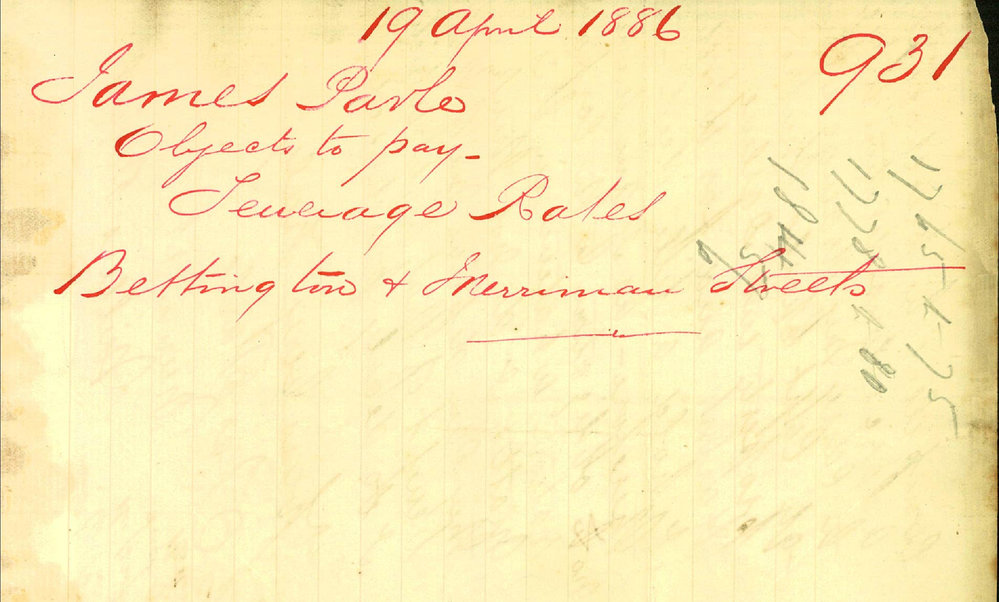 19 April 1886
931
James Parle
Objects to pay -
Sewerage Rates
Bettington + Merriman Streets